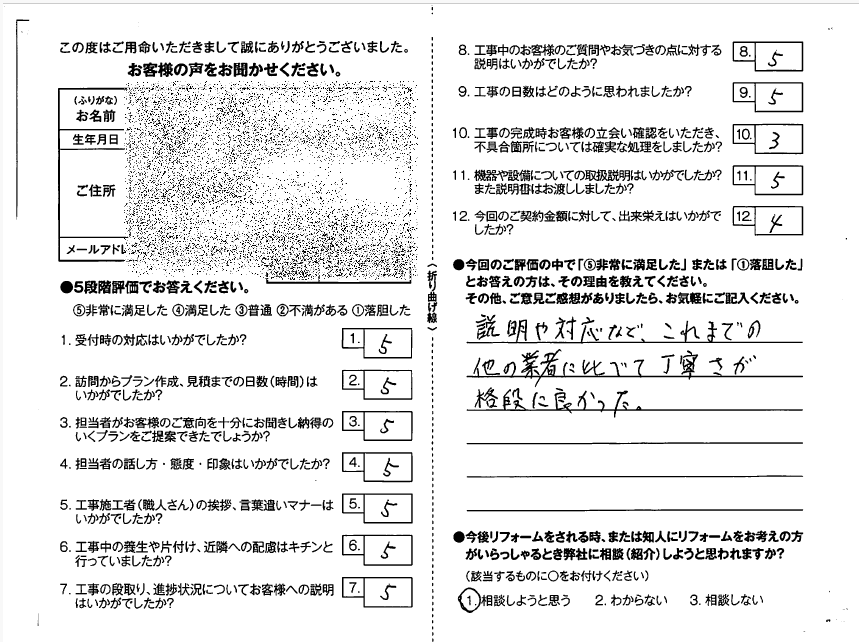 この度はご用命いただきまして誠にありがとうございました。
お客様の声をお聞かせください。
(ふりがな)
お名前
生年月日
ご住所
メールアドレ
●5段階評価でお答えください。
⑤非常に満足した ④満足した ③普通 ②不満がある ①落胆した
1. 受付時の対応はいかがでしたか?
1. 5
2. 訪問からプラン作成、見積までの日数(時間)は
いかがでしたか?
2. 5
3. 担当者がお客様のご意向を十分にお聞きし納得の
いくプランをご提案できたでしょうか?
3. 5
4. 担当者の話し方・態度・印象はいかがでしたか?
4. 5
5. 工事施工者(職人さん)の挨拶、言葉遣いマナーは
いかがでしたか?
5. 5
6. 工事中の養生や片付け、近隣への配慮はキチンと
行っていましたか?
6. 5
7. 工事の段取り、進捗状況についてお客様への説明
はいかがでしたか?
7. 5
(折り曲げ線)
8. 工事中のお客様のご質問やお気づきの点に対する
説明はいかがでしたか?
8. 5
9. 工事の日数はどのように思われましたか?
9. 5
10. 工事の完成時お客様の立会い確認をいただき、
不具合箇所については確実な処理をしましたか?
10. 3
11. 機器や設備についての取扱説明はいかがでしたか?
また説明書はお渡ししましたか?
11. 5
12. 今回のご契約金額に対して、出来栄えはいかがで
したか?
12. 4
●今回のご評価の中で「⑤非常に満足した」または「①落胆した」
とお答えの方は、その理由を教えてください。
その他、ご意見ご感想がありましたら、お気軽にご記入ください。
説明や対応など、これまでの
他の業者に比べて丁寧さが
格段に良かった。
●今後リフォームをされる時、または知人にリフォームをお考えの方
がいらっしゃるとき弊社に相談(紹介)しようと思われますか?
(該当するものに○をお付けください)
1. 相談しようと思う 2. わからない 3. 相談しない